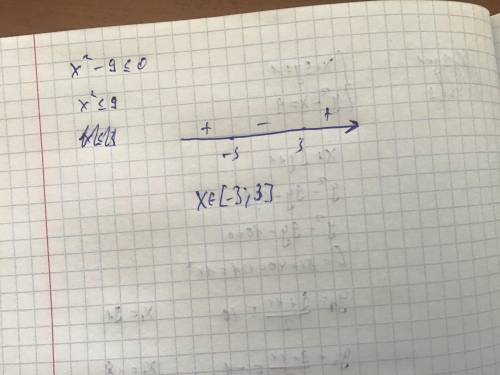 x² - 9 ≤ 0
x² ≤ 9
+ - +
-3 3
x∈[-3; 3]